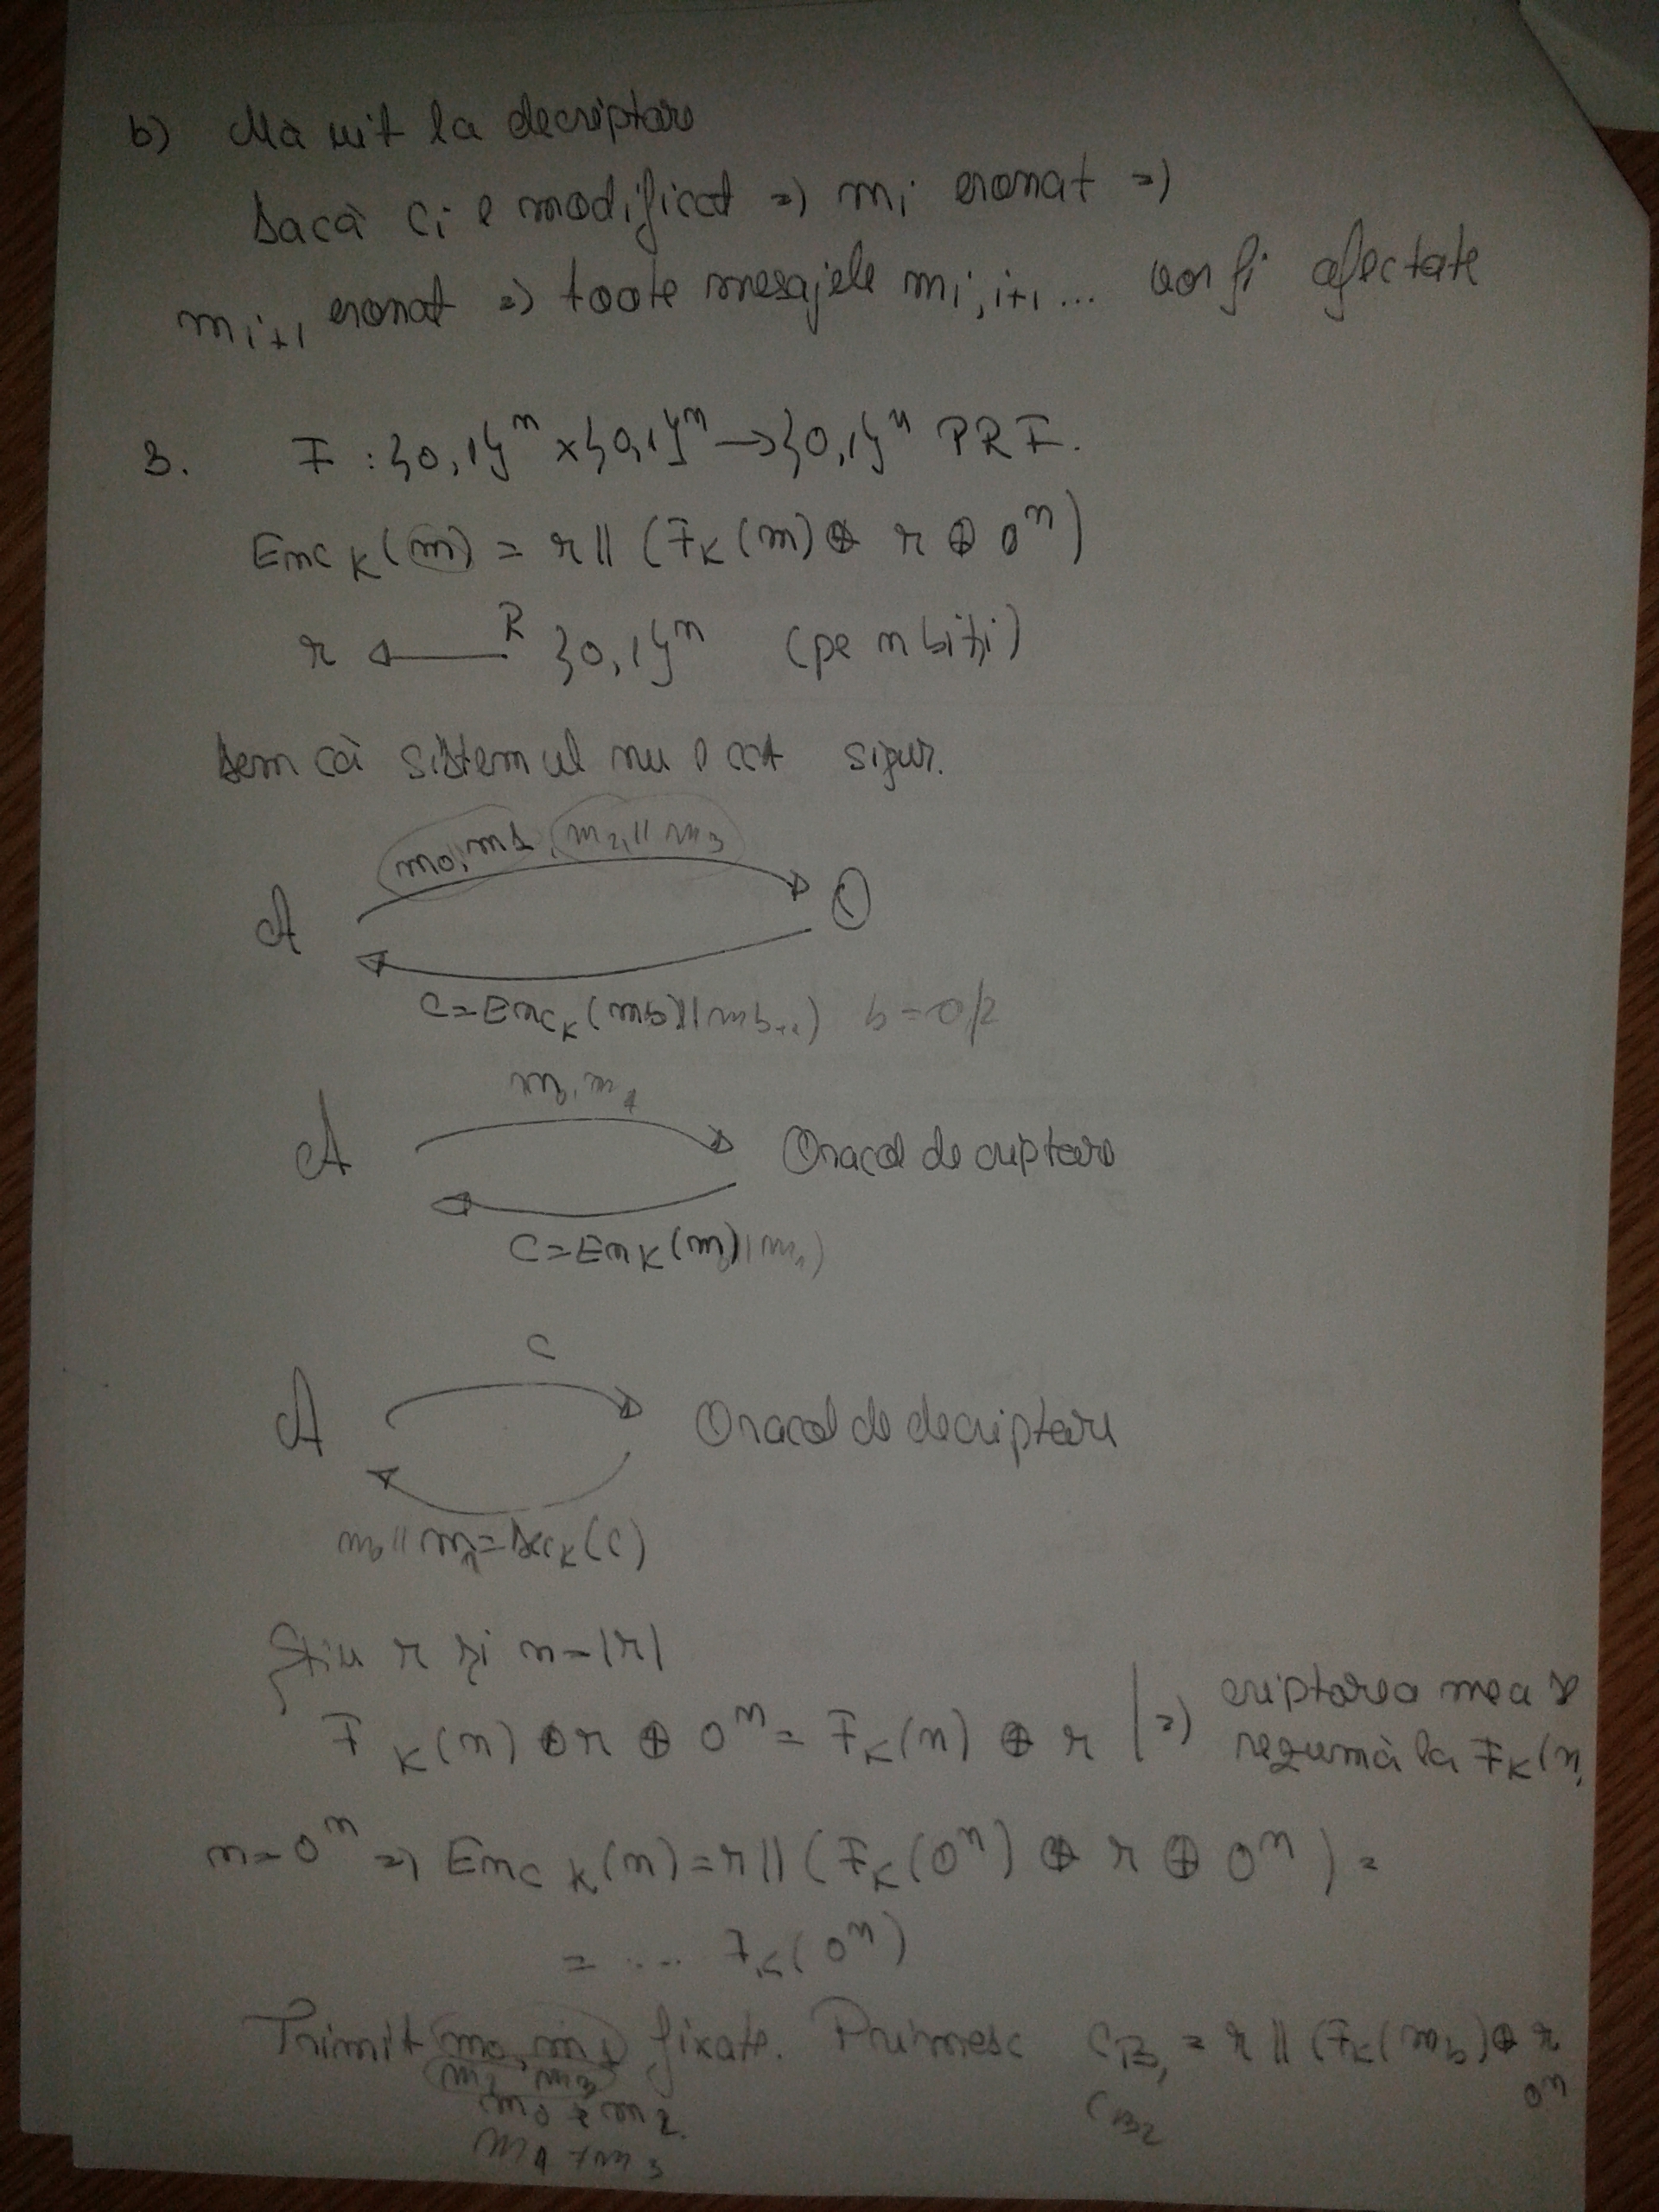 b) Mă uit la decriptare
Dacă ci e modificat => mi eronat =>
mi+1 eronat => toate mesajele mi, i+1 ... vor fi afectate
3. F : {0,1}^n x {0,1}^n → {0,1}^n PRF.
Enc_K(m) = r || (F_K(m) ⊕ r ⊕ 0^n)
r ←R {0,1}^n (pe n biți)
Dem că sistemul nu e CCA sigur.
m0, m1, m2 || m3
A O
C = Enc_K(mb || mb+1) b=0/2
m0, m1
A Oracol de criptare
C = Enc_K(m0 || m1)
C
A Oracol de decriptare
m0 || m1 = Dec_K(C)
Știu r și n = |r|
F_K(n) ⊕ r ⊕ 0^n = F_K(n) ⊕ r | => criptarea mea se
rezumă la F_K(n)
n = 0^n => Enc_K(n) = r || (F_K(0^n) ⊕ r ⊕ 0^n) =
= ... F_K(0^n)
Trimit m0, m1 fixate. Primesc C_B1 = r || (F_K(mb) ⊕ r
m2 m3 0^n
m0 ≠ m2. C_B2
m1 ≠ m3